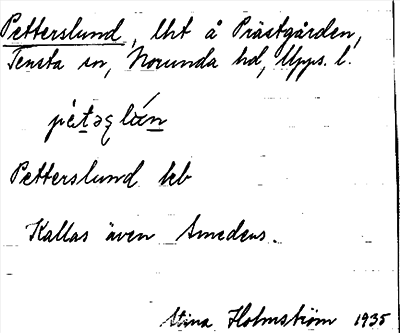 Petterslund, lht å Prästgården,
Tensta sn, Norunda hd, Upps. l.
Petterslund kb
Kallas även Smedens.
Stina Holmström 1935